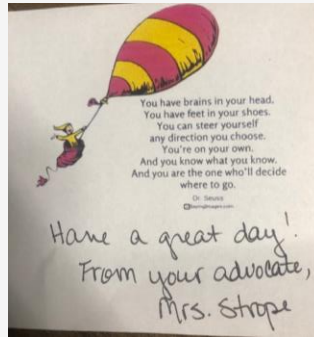 You have brains in your head.
You have feet in your shoes.
You can steer yourself
any direction you choose.
You're on your own.
And you know what you know.
And you are the one who'll decide
where to go.
Dr. Seuss
Have a great day!
From your advocate,
Mrs. Strope